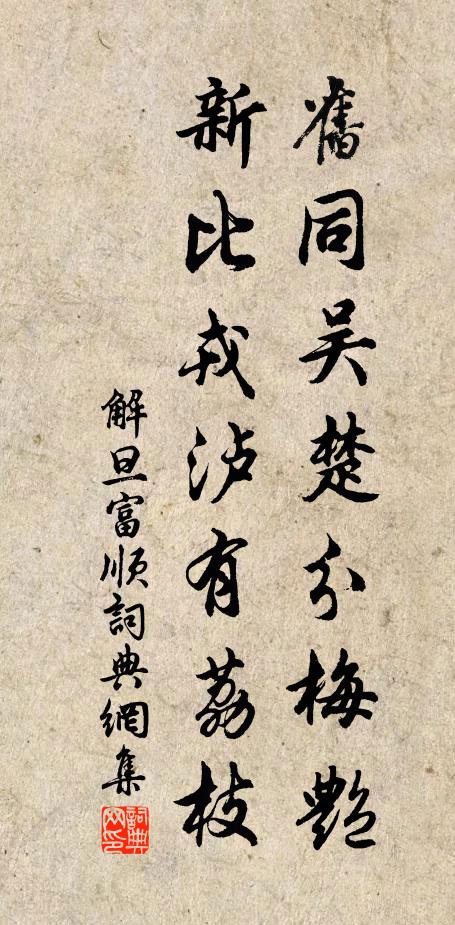 舊同吴楚分梅艷
新比戎泸有荔枝
解旦富順詞典網集
詞典網印